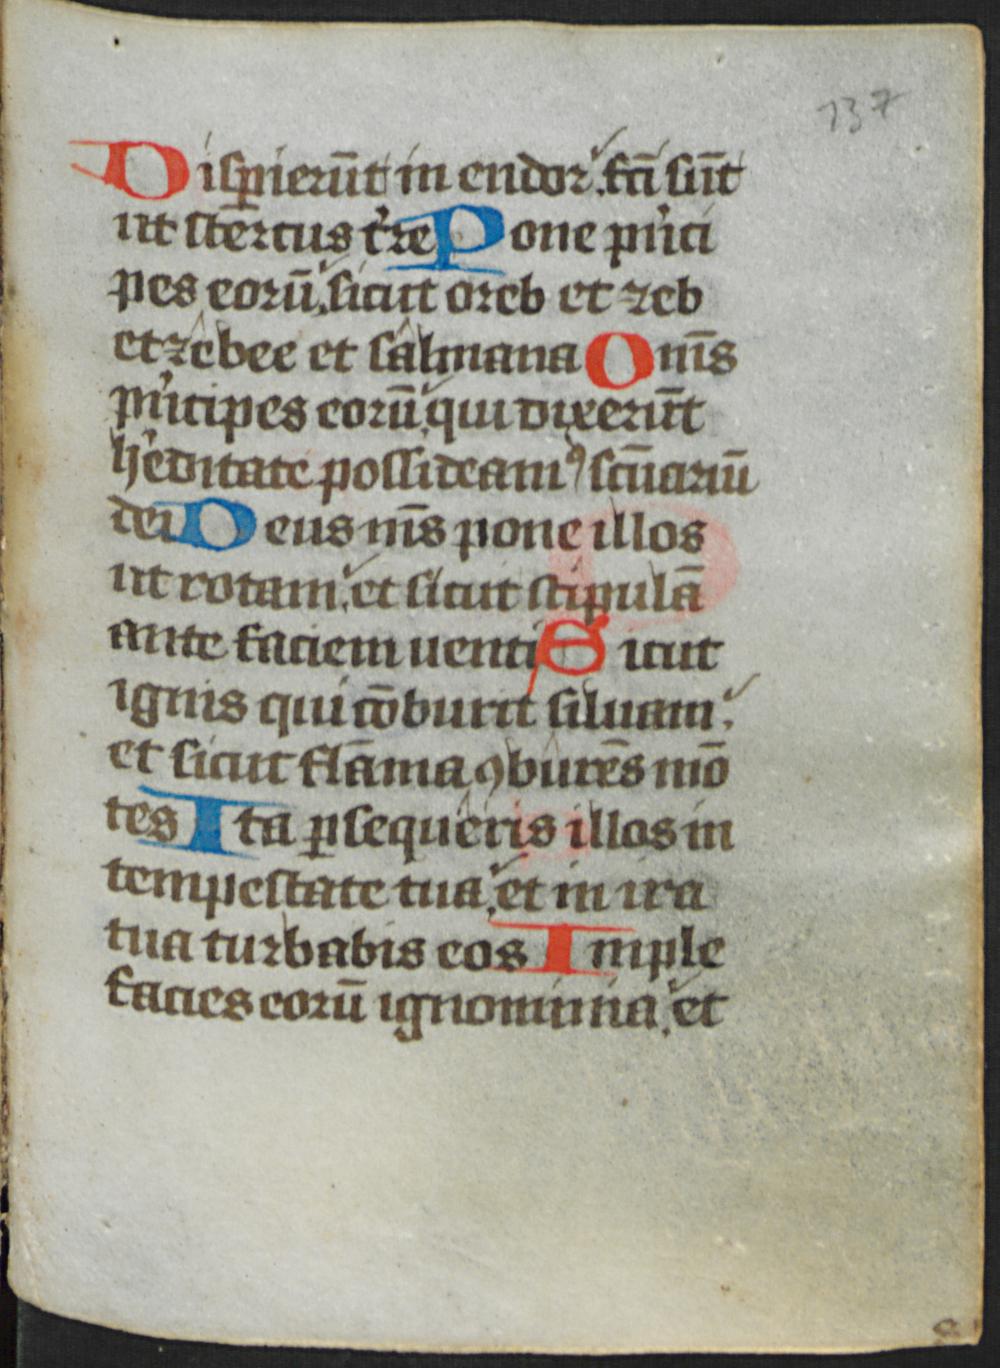 137
Disꝑierūt in endor. fcī sūt
ut stercus t're Pone pn'ci
pes eorū, sicut oreb et zeb
et zebee et salmana Om̄s
pn'cipes eorū, qui dixerūt
h'editate possideamꝰ sc̄uariū
dei Deus m̄s pone illos
ut rotam, et sicut stipulā
ante faciem uenti Sicut
ignis qui cōburit siluam,
et sicut flāma ꝯburēs mō
tes Ita ꝑsequeris illos in
tempestate tua, et in ira
tua turbabis eos Imple
facies eorū ignominia, et